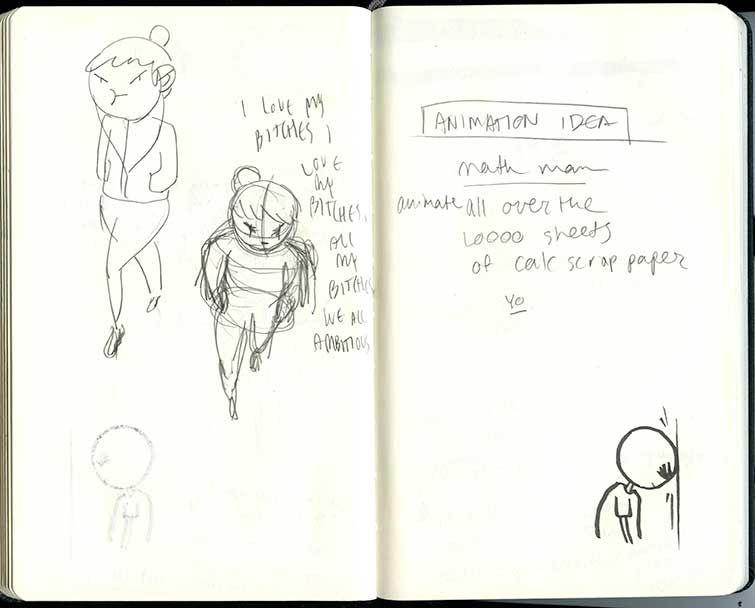 I LOVE MY
BITCHES I
LOVE
MY
BITCHES,
ALL
MY
BITCHES
WE ALL
AMBITIOUS
ANIMATION IDEA
math man
animate all over the
10000 sheets
of calc scrap paper
yo